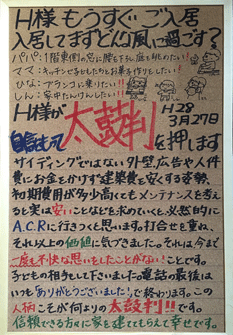 H様 もうすぐご入居
入居してまずどんな風に過ごす?
パパ：1階東側の窓に腰を下ろし庭を眺めたい!!
ママ：キッチンで子どもたちとお菓子を作りをしたい!
ひな：ブランコに乗りたい!
しん：家中たんけんしたい!
H様が
太鼓判
H.28
3月27日
自信もって
を押します
サイディングではない外壁 広告や人件
費にお金をかけず建築費を安くする姿勢
初期費用が多少高くてもメンテナンスを考え
ると実は安いことなどを求めていくと、必然的に
A.C.Rに行きつくと思います。打合せを重ね、
それ以上の価値に気づきました。それは、今まで
一度も不快な思いをしたことがない!ことです。
子どもの相手もして下さいました。電話の最後は、
いつも「ありがとうございました!」で終わります。この
人柄こそが何よりの太鼓判!!です。
信頼できる方々に家を建ててもらえて幸せです。